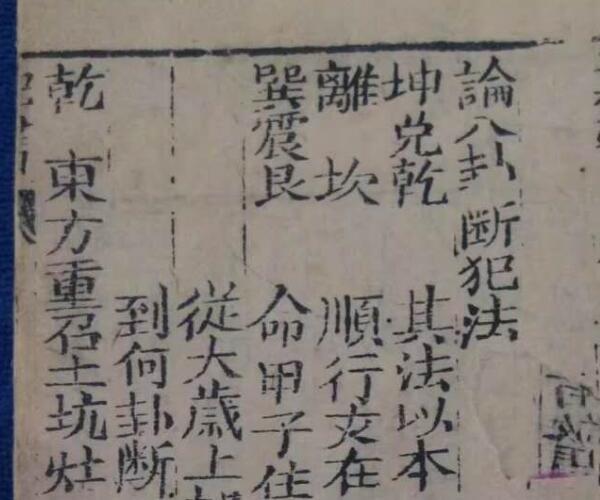 論八卦断犯法
坤兑乾 其法以本
離 坎 順行文在
巽震艮 命甲子住
從大歳上
到何卦断
乾 東方重召土坑灶